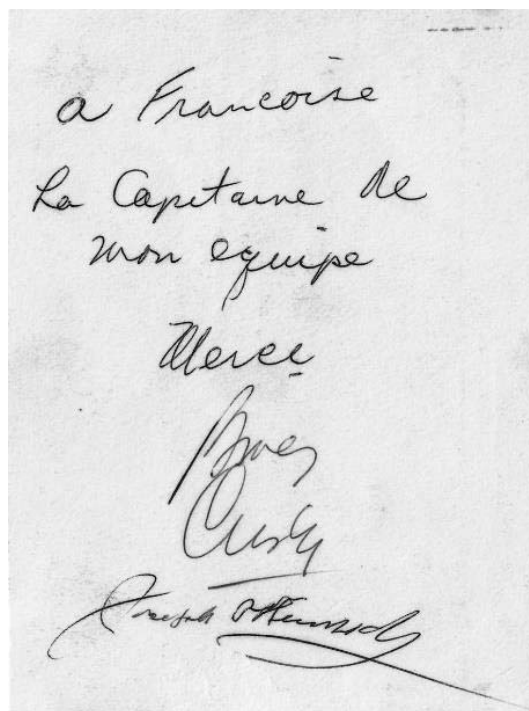 a Francoise
La Capitaine de
mon equipe
Merci
Joseph